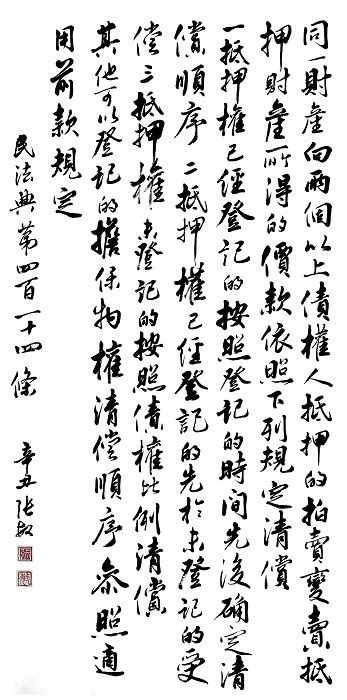 同一財產向兩個以上債權人抵押的拍賣變賣抵
押財產所得的價款依照下列規定清償
一抵押權已經登記的按照登記的時間先後確定清
償順序二抵押權已經登記的先於未登記的受
偿三抵押權未登記的按照債權比例清償
其他可以登記的擔保物權清偿順序參照適
用前款規定
民法典第四百一十四條 辛丑张敏